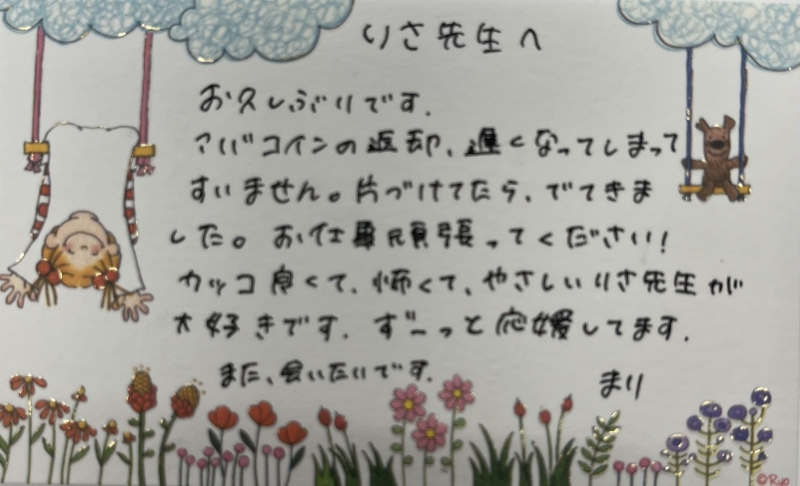 りさ先生へ
お久しぶりです.
アバコインの返却、遅くなってしまって
すいません。片づけてたら、でてきま
した。お仕事頑張ってください!
カッコ良くて、怖くて、やさしいりさ先生が
大好きです. ずーっと応援してます.
また、会いたいです.
まり
©Ryo